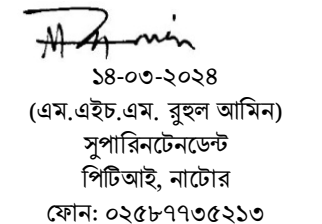 ১৪-০৩-২০২৪
(এম.এইচ.এম. রুহুল আমিন)
সুপারিনটেনডেন্ট
পিটিআই, নাটোর
ফোন: ০২৫৮৭৭৩৫২১৩